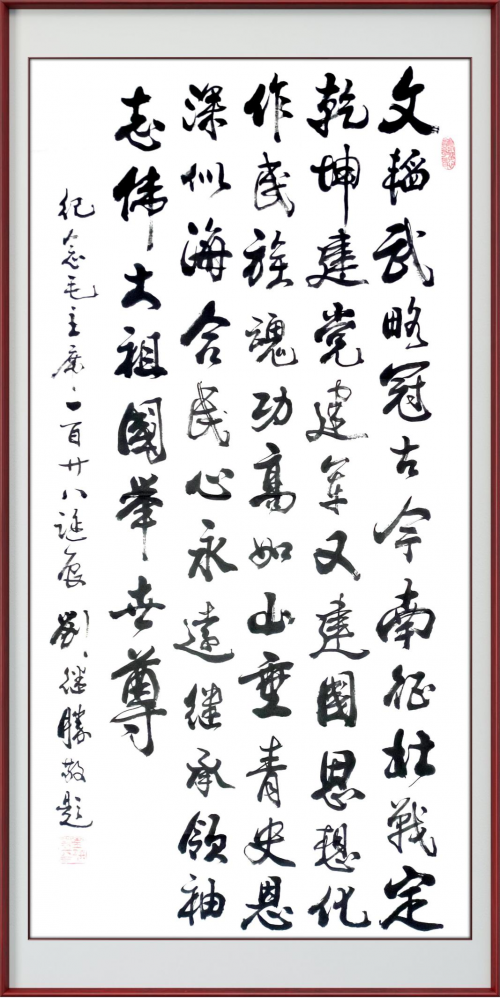 文韬武略冠古今南征北战定
乾坤建党建军又建国思想化
作民族魂功高如山垂青史恩
深似海合民心永远继承领袖
志伟大祖国举世尊
纪念毛主席一百廿八诞辰 刘继胜敬题